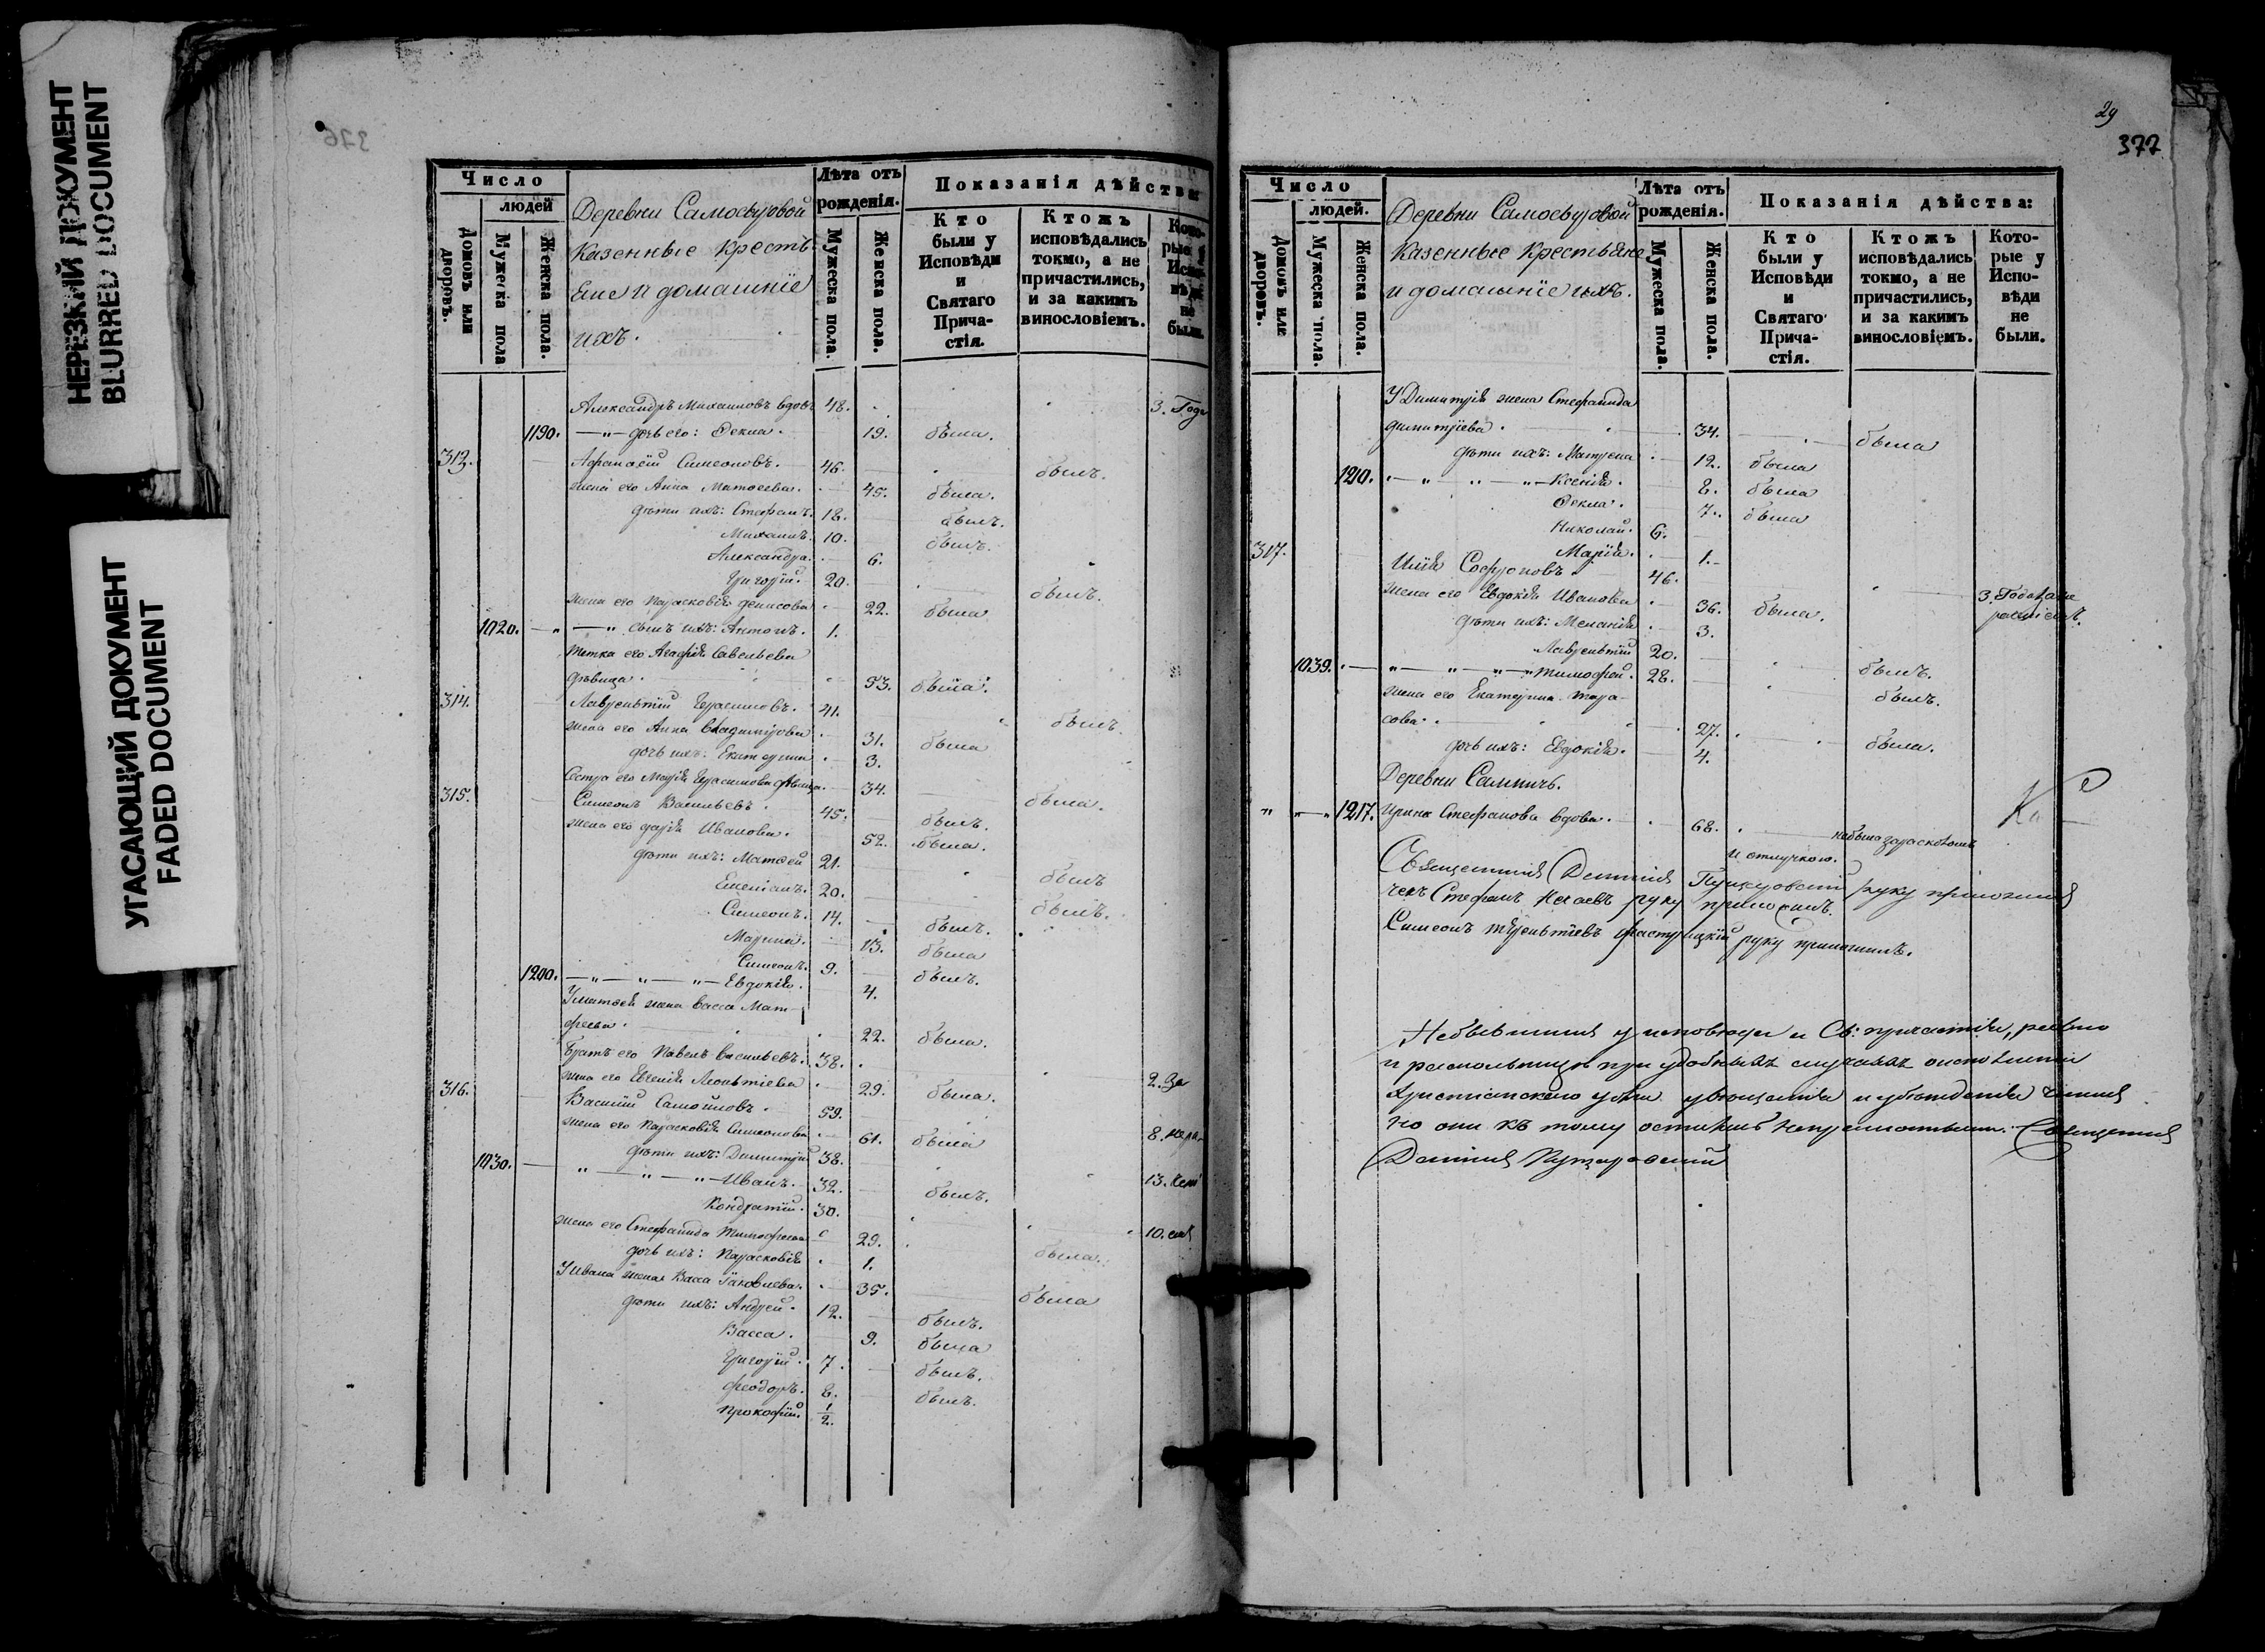 НЕРЕЗКИЙ ДОКУМЕНТ
BLURRED DOCUMENT
УГАСАЮЩИЙ ДОКУМЕНТ
FADED DOCUMENT
376
Число
людей
Домовъ или дворовъ.
Мужеска пола
Женска пола.
Деревни Самосудовой
Казенные Крестья
не и домашніе
ихъ.
Лѣта отъ рожденія.
Мужеска пола.
Женска пола.
Показанія дѣйства:
Кто были у Исповѣди и Святаго Причастія.
Ктожъ исповѣдались токмо, а не причастились, и за какимъ винословіемъ.
Которые у Исповѣди не были.
Александръ Михаиловъ вдовъ 48. 3. Года
1190. дочь его: Ѳекла. 19. была.
313. Афанасій Симеоновъ. 46. былъ.
жена его Анна Матѳеева. 45. была.
дѣти ихъ: Стефанъ. 18. былъ.
Михаилъ. 10. былъ.
Александра. 6.
Григорій. 20. былъ.
жена его Параскевія Денисова 22. была
1020. сынъ ихъ: Антонъ. 1.
Тетка его Агафія Савельева
дѣвица. 53. была.
314. Лаврентій Герасимовъ. 41. былъ.
жена его Анна Владимірова 31. была
дочь ихъ: Екатерина 3.
Сестра его Марія Герасимова дѣвица. 34. была.
315. Симеонъ Васильевъ. 45. былъ.
жена его Дарія Иванова. 52. была.
дѣти ихъ: Матѳей 21. былъ
Емеліанъ. 20. былъ.
Симеонъ. 14. былъ.
Марина. 13. была
Симеонъ. 9. былъ.
1200. Евдокія. 4.
У Матѳея жена Васса Мат-
феева. 22. была.
Братъ его Павелъ Васильевъ. 38. 2. За
жена его Евгенія Леонтіева 29. была.
316. Василій Самойловъ. 59. 8. нера
жена его Параскевія Симеонова 61. была
дѣти ихъ: Димитрій 38. 13. Лѣт
1030. Иванъ. 32. былъ.
Кондратій. 30. 10.
жена его Стефанида Тимофеева 29. была.
дочь ихъ: Параскевія 1.
У Ивана жена Васса Іаковлева. 35. была
дѣти ихъ: Андрей. 12. былъ.
Васса. 9. была
Григорій. 7. былъ.
Феодоръ. 8. былъ.
Прокофій. 1/2.
29
377
Число
людей.
Домовъ или дворовъ.
Мужеска пола.
Женска пола.
Деревни Самосудовой
Казенные Крестьяне
и домашніе ихъ.
Лѣта отъ рожденія.
Мужеска пола.
Женска пола.
Показанія дѣйства:
Кто были у Исповѣди и Святаго Причастія.
Ктожъ исповѣдались токмо, а не причастились, и за какимъ винословіемъ.
Которые у Исповѣди не были.
У Димитрія жена Стефанида
Димитріева. 34. была
дѣти ихъ: Матрена 12. была
1210. Ксенія. 8. была
Ѳекла. 7. была
Николай. 6.
Марія. 1.
317. Илія Софроновъ 46. 3. Года
жена его Евдокія Иванова 36. была.
дѣти ихъ: Меланія 3.
Лаврентій 20. былъ.
1039. Тимофей. 28. былъ.
жена его Екатерина Тара-
сова. 27. была.
дочь ихъ: Евдокія. 4.
Деревни
1217. Ирина Стефанова вдова. 68. не была за расколомъ
и отлучкою.
Священникъ руку приложилъ
Стефанъ руку приложилъ.
Симеонъ руку приложилъ.
Небывшимъ у исповѣди и Св: причастія, равно
и раскольницы при удобныхъ случаяхъ
Христіанскаго увѣщанія и убѣжденія
но они къ тому остались непреклонными. Священникъ